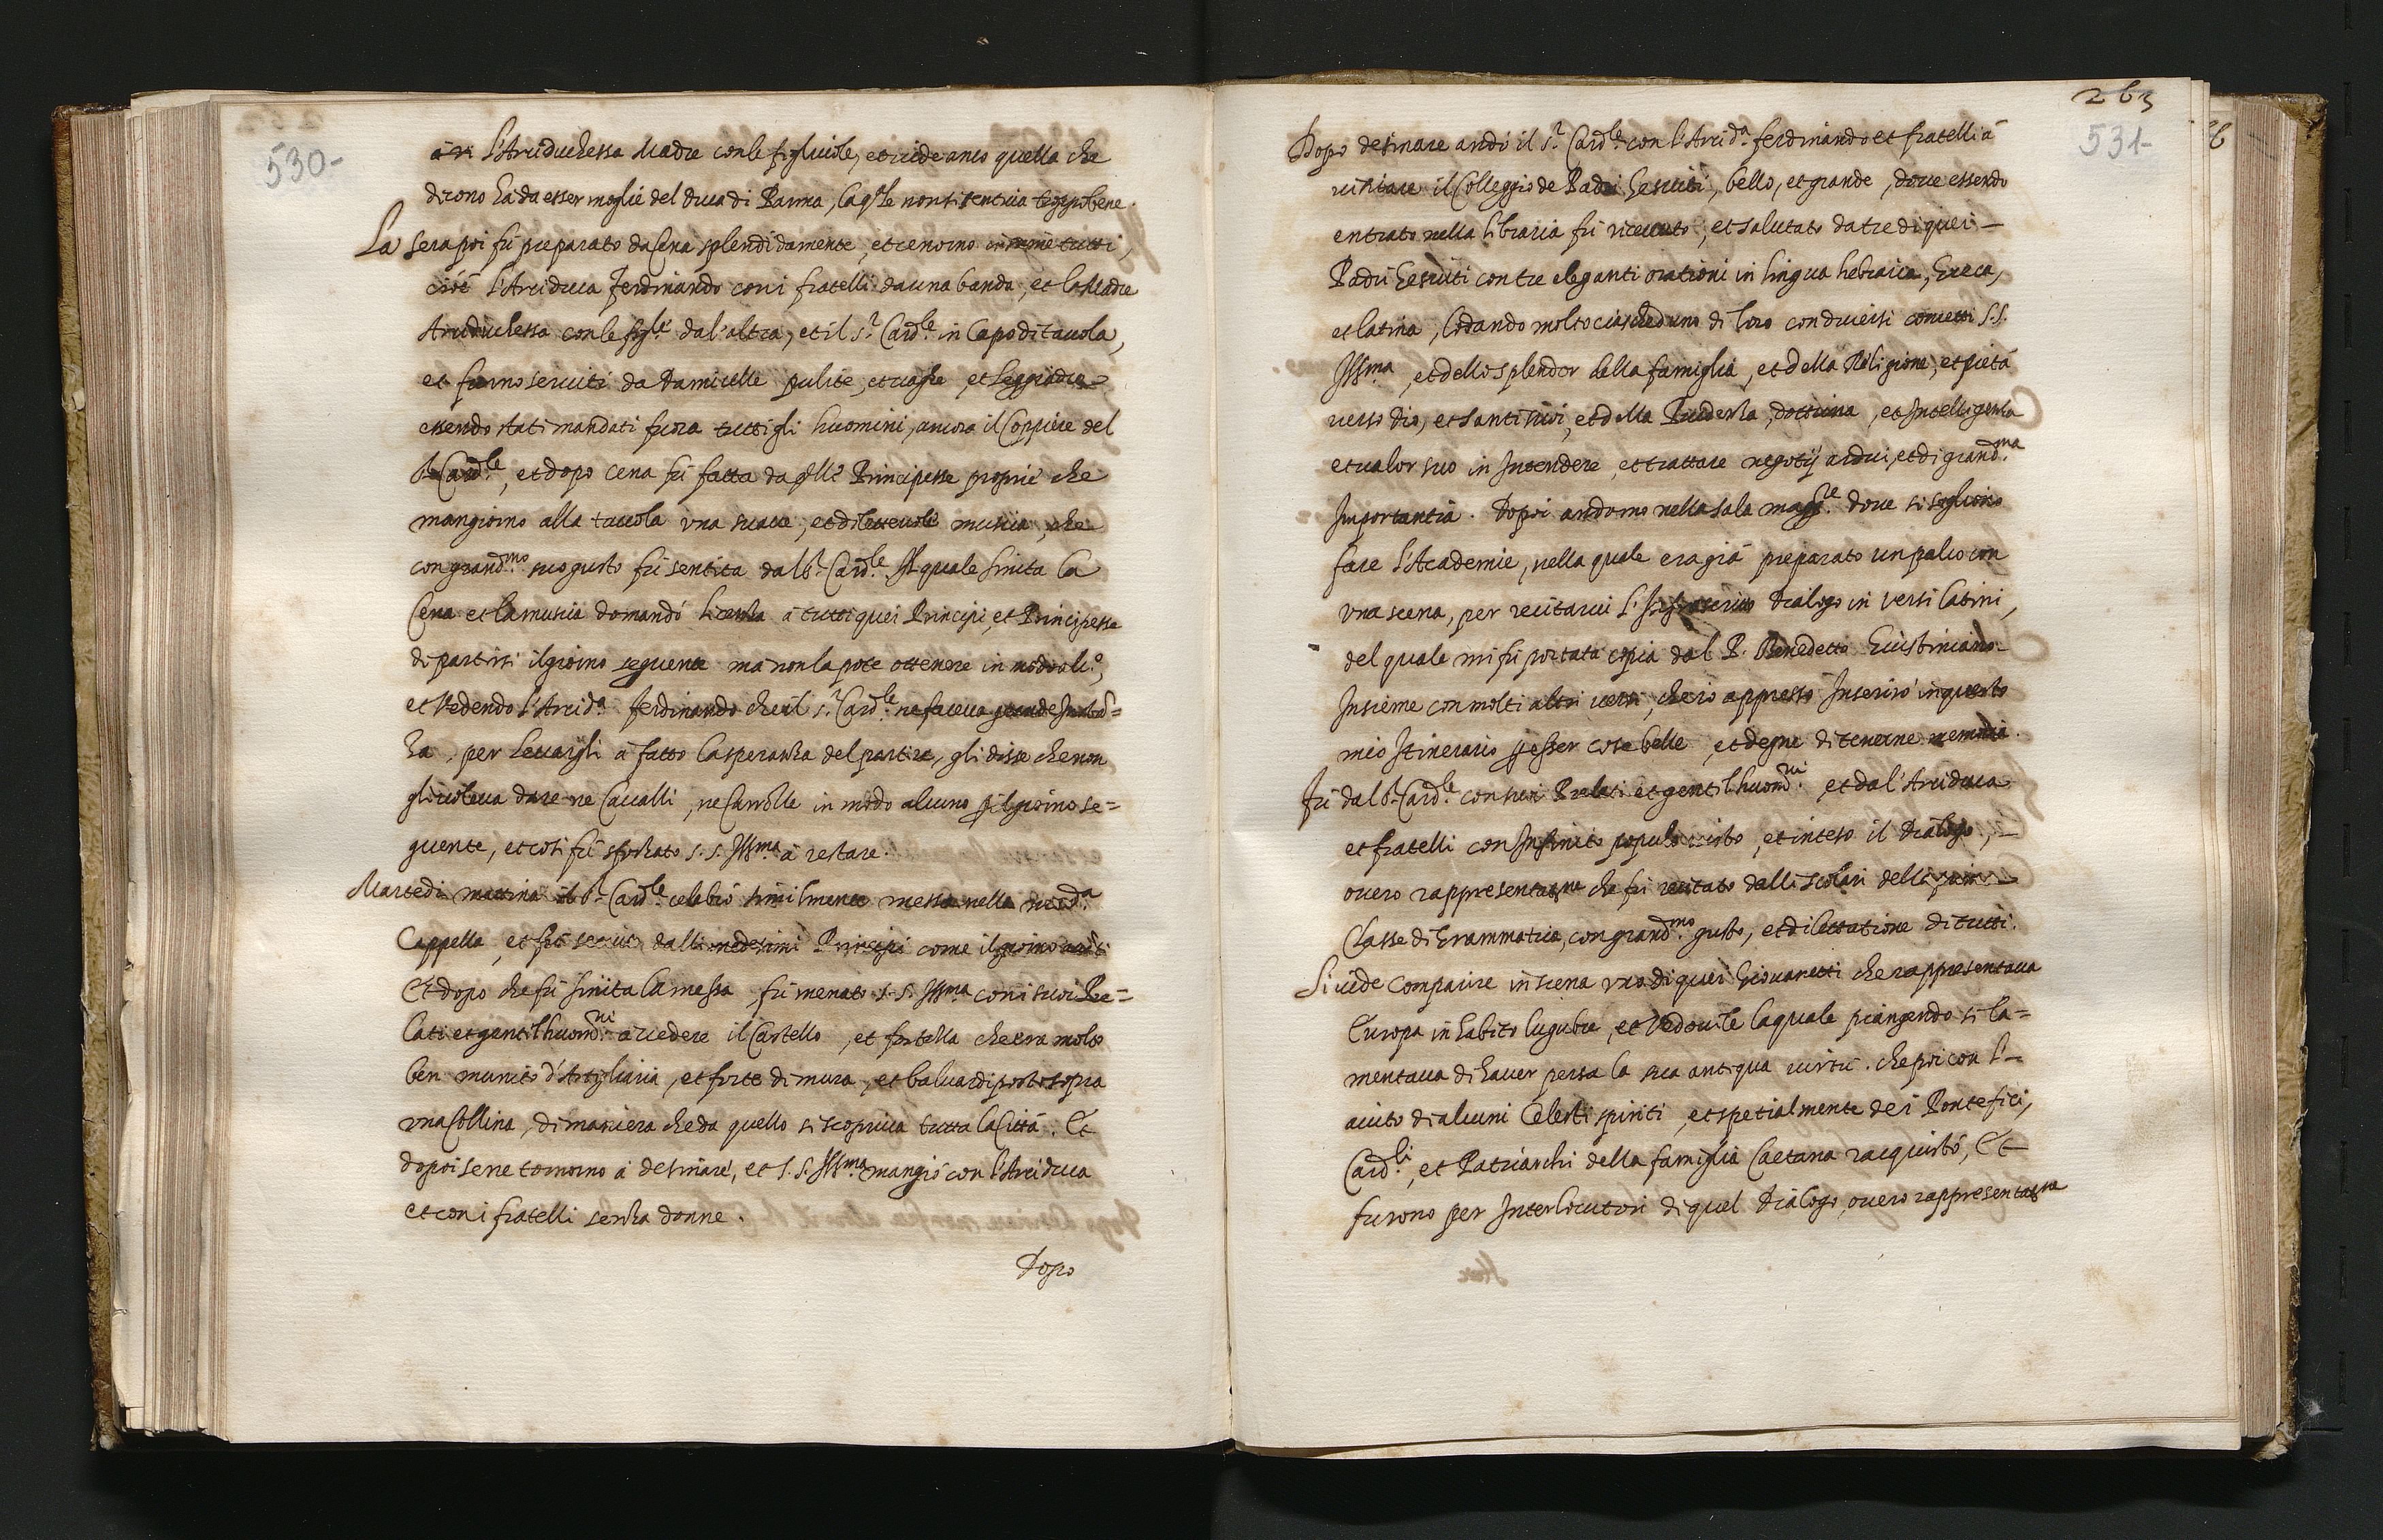 530-
l'Arciduchessa Madre con le figliuole, et vide anco quella che
dicono ha da esser moglie del Duca di Parma, la q.le non si sentiva troppo bene.
La sera poi fù preparato da Cena splendidamente, et cenorno insieme tutti,
cioè l'Arciduca Ferdinando con i fratelli da una banda, et la Madre
Arciduchessa con le figl.e dal'altra, et il S.r Card.le in Capo di tavola,
et furno serviti da Damicelle pulite, et vaghe et leggiadre
essendo stati mandati fuora tutti gli huomini, ancora il Coppiere del
S.r Card.le, et dopo cena fù fatta da q̃lle Principesse proprie che
mangiorno alla tavola una suave, et dilettevole musica, che
con grand.mo suo gusto fù sentita dal S.r Card.le Il quale finita la
Cena et la musica domandó licenza à tutti quei Principi, et Principesse
di partirsi il giorno seguente ma non la pote ottenere in modo alc.o,
et Vedendo l'Arcid.a Ferdinando che il S.r Card.le ne faceva grande
za, per levargli à fatto la speranza del partire, gli disse che non
gli voleva dare ne Cavalli, ne Carrozze in modo alcuno p il giorno se=
guente, et così fù sforzato S. S. Ill.ma à restare.
Martedi mattina il S.r Card.le celebrò similmente messa nella med.a
Cappella, et fù servito dalli medesimi Principi come il giorno
Et dopo che fù finita la messa fù menato S. S. Ill.ma con i suoi Pre=
lati et gentilhuom.ni à vedere il Castello, et fortezza che era molto
ben munito d'Artigliaria, et forte di mura, et baluardi posto sopra
una Collina, di maniera che da quello si scopriva tutta la Città. Et
dopoi se ne tornorno à desinare, et S. S. Ill.ma mangiò con l'Arciduca
et con i fratelli senza donne.
Dopo
263
531-
Dopo desinare andò il S.r Card.le con l'Arcid.a Ferdinando et fratelli à
visitare il Colleggio de Padri Gesuiti, bello, et grande, dove essendo
entrato nella libraria fù ricevuto, et salutato da tre di quei
Padri Gesuiti con tre eleganti orationi in lingua hebraica, Greca,
et latina, lodando molto ciascheduno di loro con diversi concetti S. S.
Ill.ma, et dello splendor della famiglia, et della Religione, et pietà
verso Dio, et santi suoi, et della Prudenza, dottrina, et Intelligenza
et valor suo in Intendere, et trattare negotij ardui, et di grand.ma
Importantia. Dopoi andorno nella sala magg.re dove si sogliono
fare l'Academie, nella quale era già preparato un palco con
una scena, per recitarvi l'Infrascritto Dialogo in versi latini,
del quale mi fù portata copia dal P. Benedetto Giustiniano
Insieme con molti altri versi, che io appresso Inserirò in questo
mio Itinerario p esser cose belle, et degne di tenerne memoria.
Fù dal S.r Card.le con suoi Prelati et gentilhuom.ni, et dal'Arciduca
et fratelli con Infinito populo visto, et inteso il Dialogo,
overo rappresentat.ne che fù recitato dalli scolari della prima
Classe di Grammatica, con grand.mo gusto, et dilettatione di tutti.
Si vide comparire in scena uno di quei Giovanetti che rappresentava
Europa in habito lugubre, et Vedovile la quale piangendo si la=
mentava di haver persa la sua antiqua virtù. che poi con l'
aiuto di alcuni Celesti spiriti, et spetialmente de i Pontefici,
Card.li, et Patriarchi della famiglia Caetana racquistò, Et
furono per Interlocutori di quel Dialogo, overo rappresentat.ne